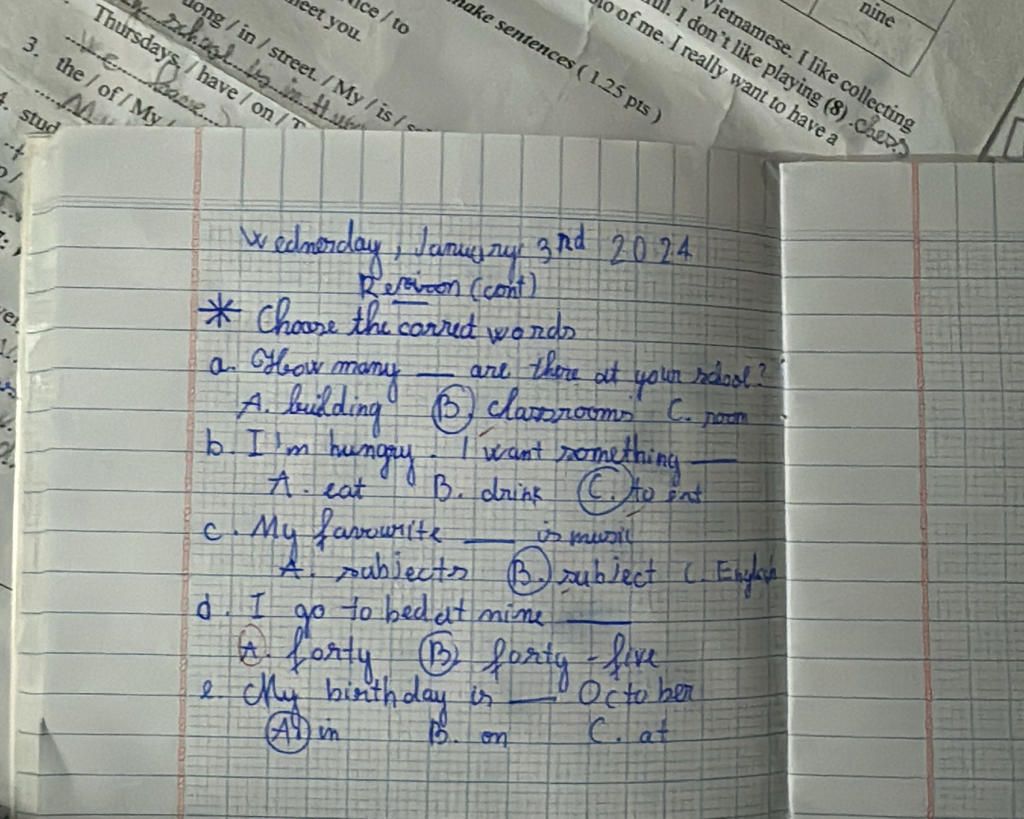 uong / in / street. / My / is /
Thursdays. / have / on / T
3. the / of / My /
4. stud
ice / to
meet you.
make sentences ( 1.25 pts )
Vietnamese. I like collecting
ul. I don't like playing (8) .chess
to of me. I really want to have a
nine
Wednesday, January 3rd 2024
Revision (cont)
* Choose the correct words
a. How many __ are there at your school?
A. building B. classrooms C. room
b. I'm hungry. I want something __
A. eat B. drink C. to eat
c. My favourite __ is music
A. subjects B. subject C. English
d. I go to bed at nine __
A. forty B. forty - five
e. My birthday is __ October
A. in B. on C. at